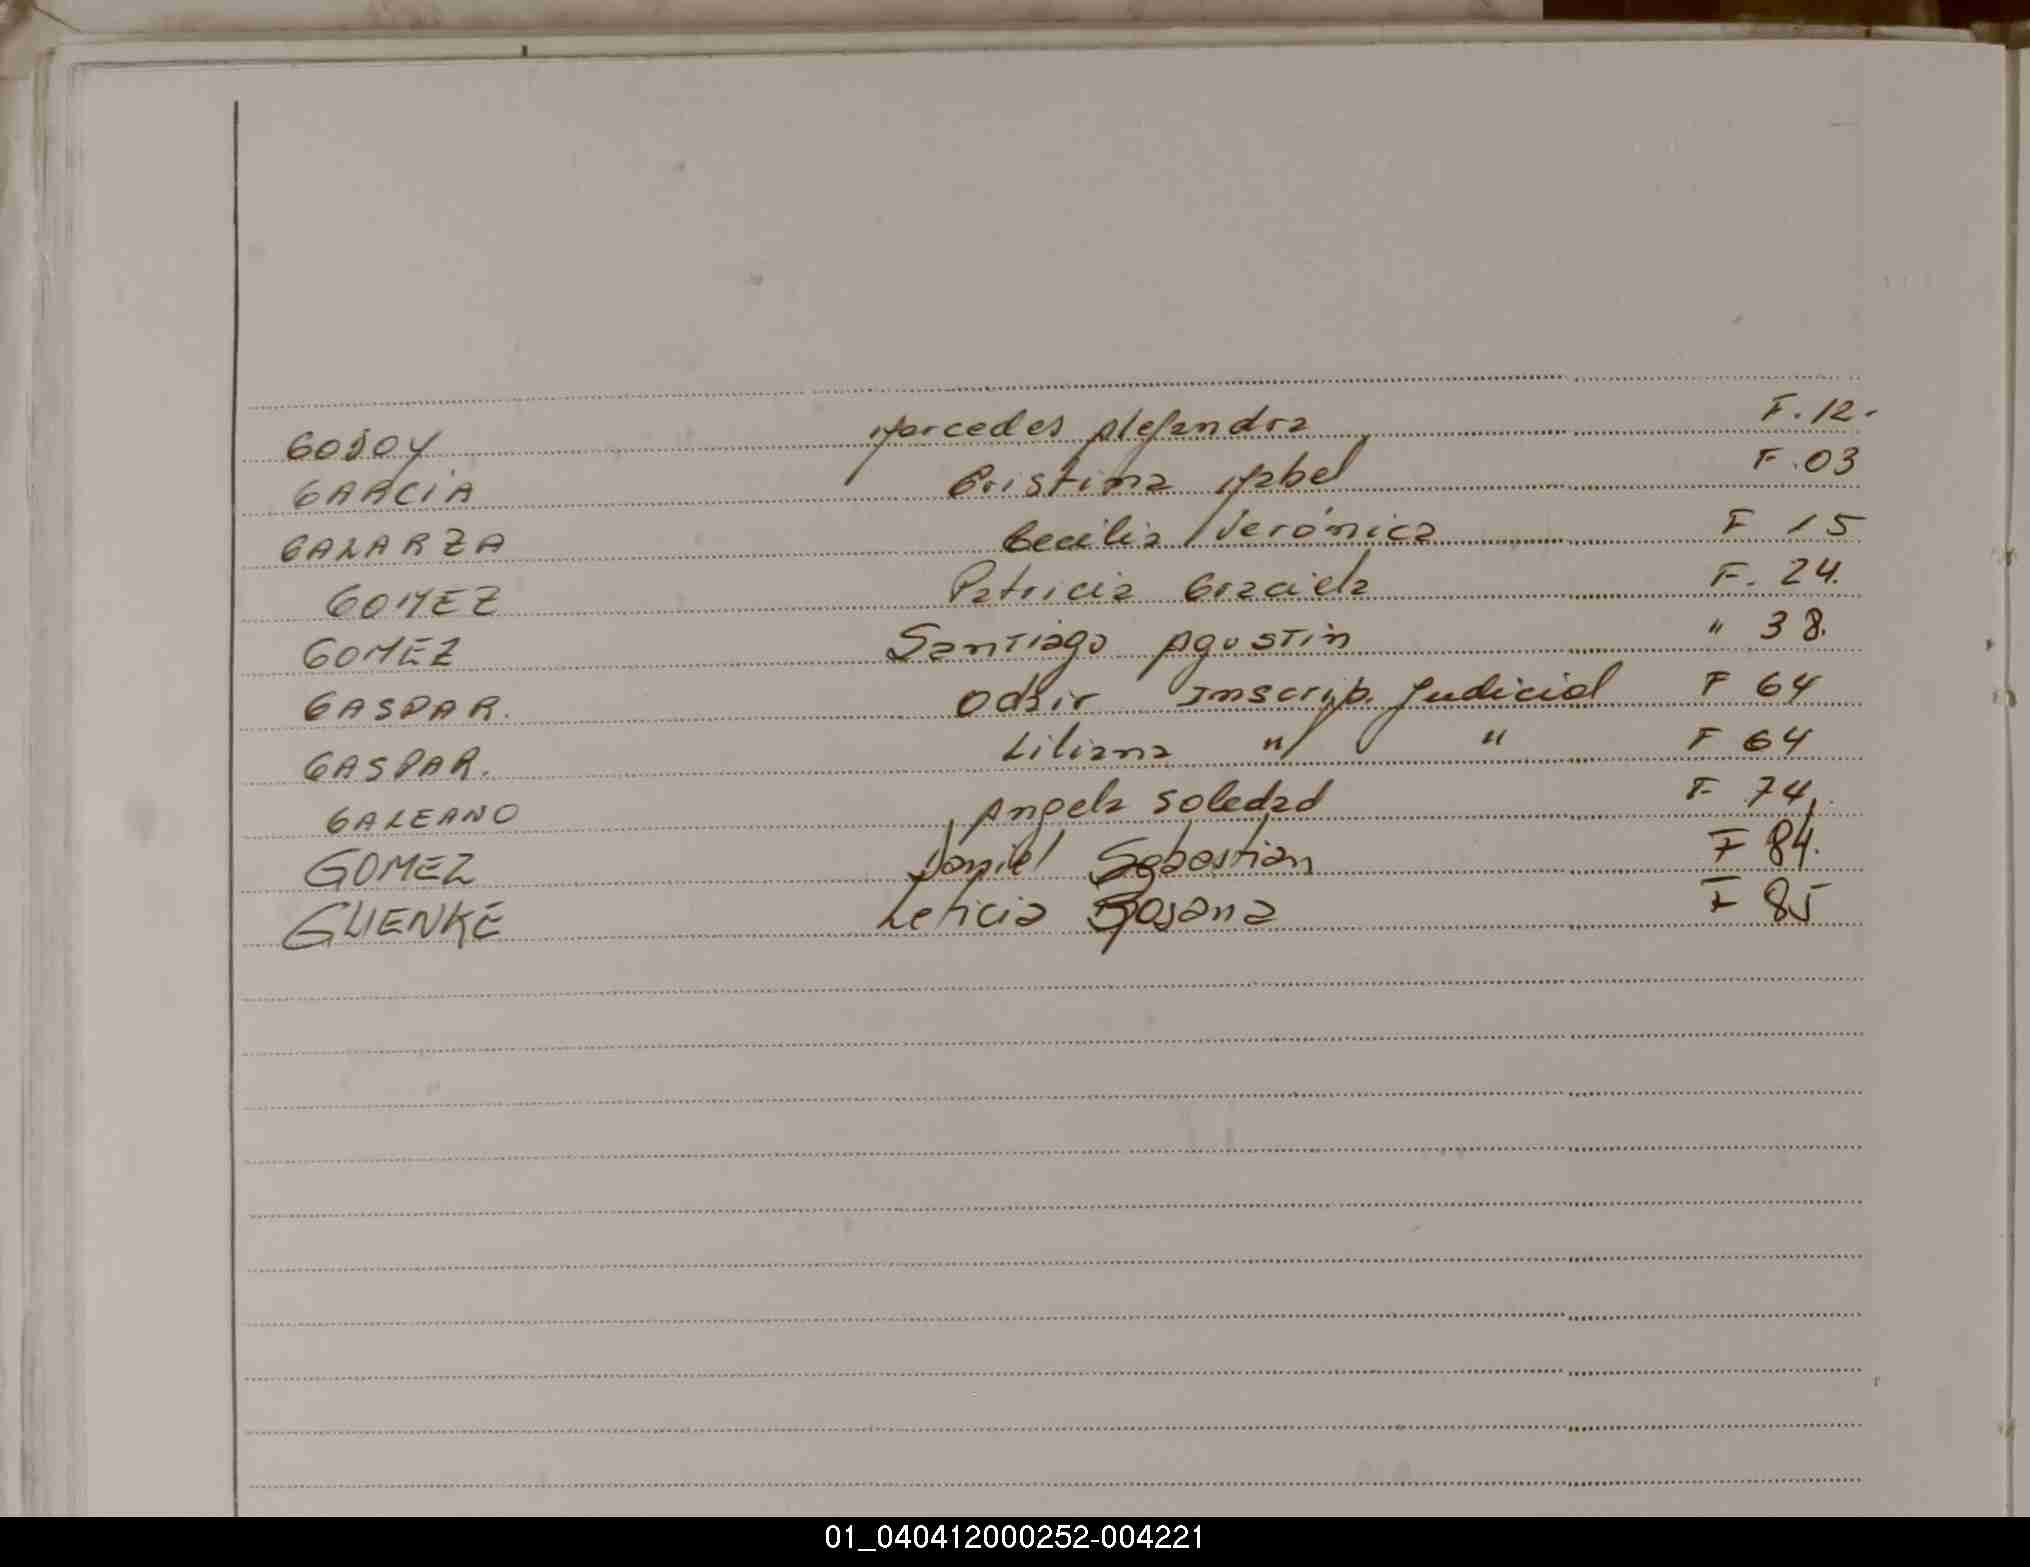 GODOY Mercedes Alejandra F. 12.
GARCIA Cristina Mabel F. 03
GALARZA Cecilia Verónica F 15
GOMEZ Patricia Graciela F. 24.
GOMEZ Santiago Agustin " 38.
GASPAR. Odair Inscrip. Judicial F 64
GASPAR. Liliana " " F 64
GALEANO Angela Soledad F 74
GOMEZ Daniel Sebastian F 84.
GLIENKE Leticia Rosana F 85
01_040412000252-004221